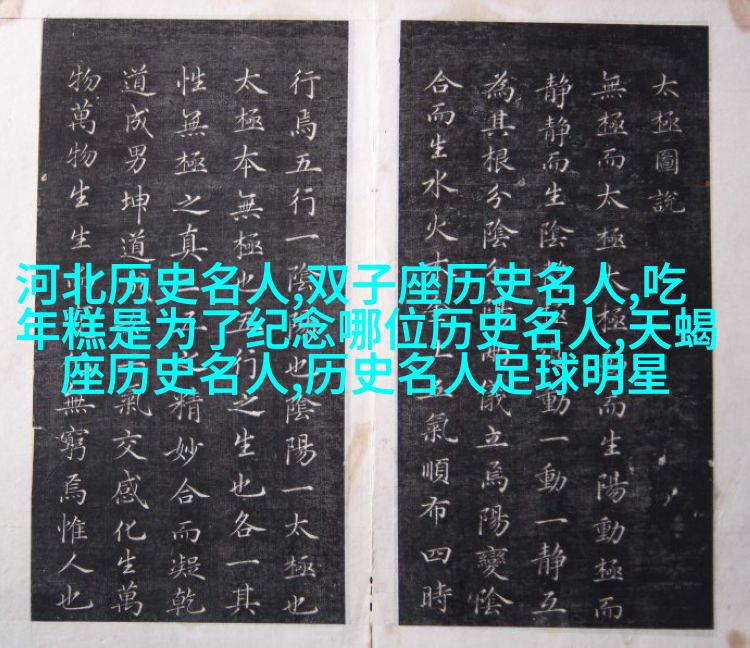 河北历史名人,双子座历史名人,吃
年糕是为了纪念哪位历史名人,天蝎
座历史名人,历史名人足球明星
太極圖說
無極而太極太極動而生陽動極而
静静而生陰極動一動一静互
為其根分陰分立焉陽變陰
合而生水火五氣順布四時
行焉五行一陰陽也陰陽一太極也
太極本無極也五行之生也各一其
性無極之真二五精妙合而凝乾
道成男坤道成氣交感化生萬
物萬物生生無窮焉惟人也